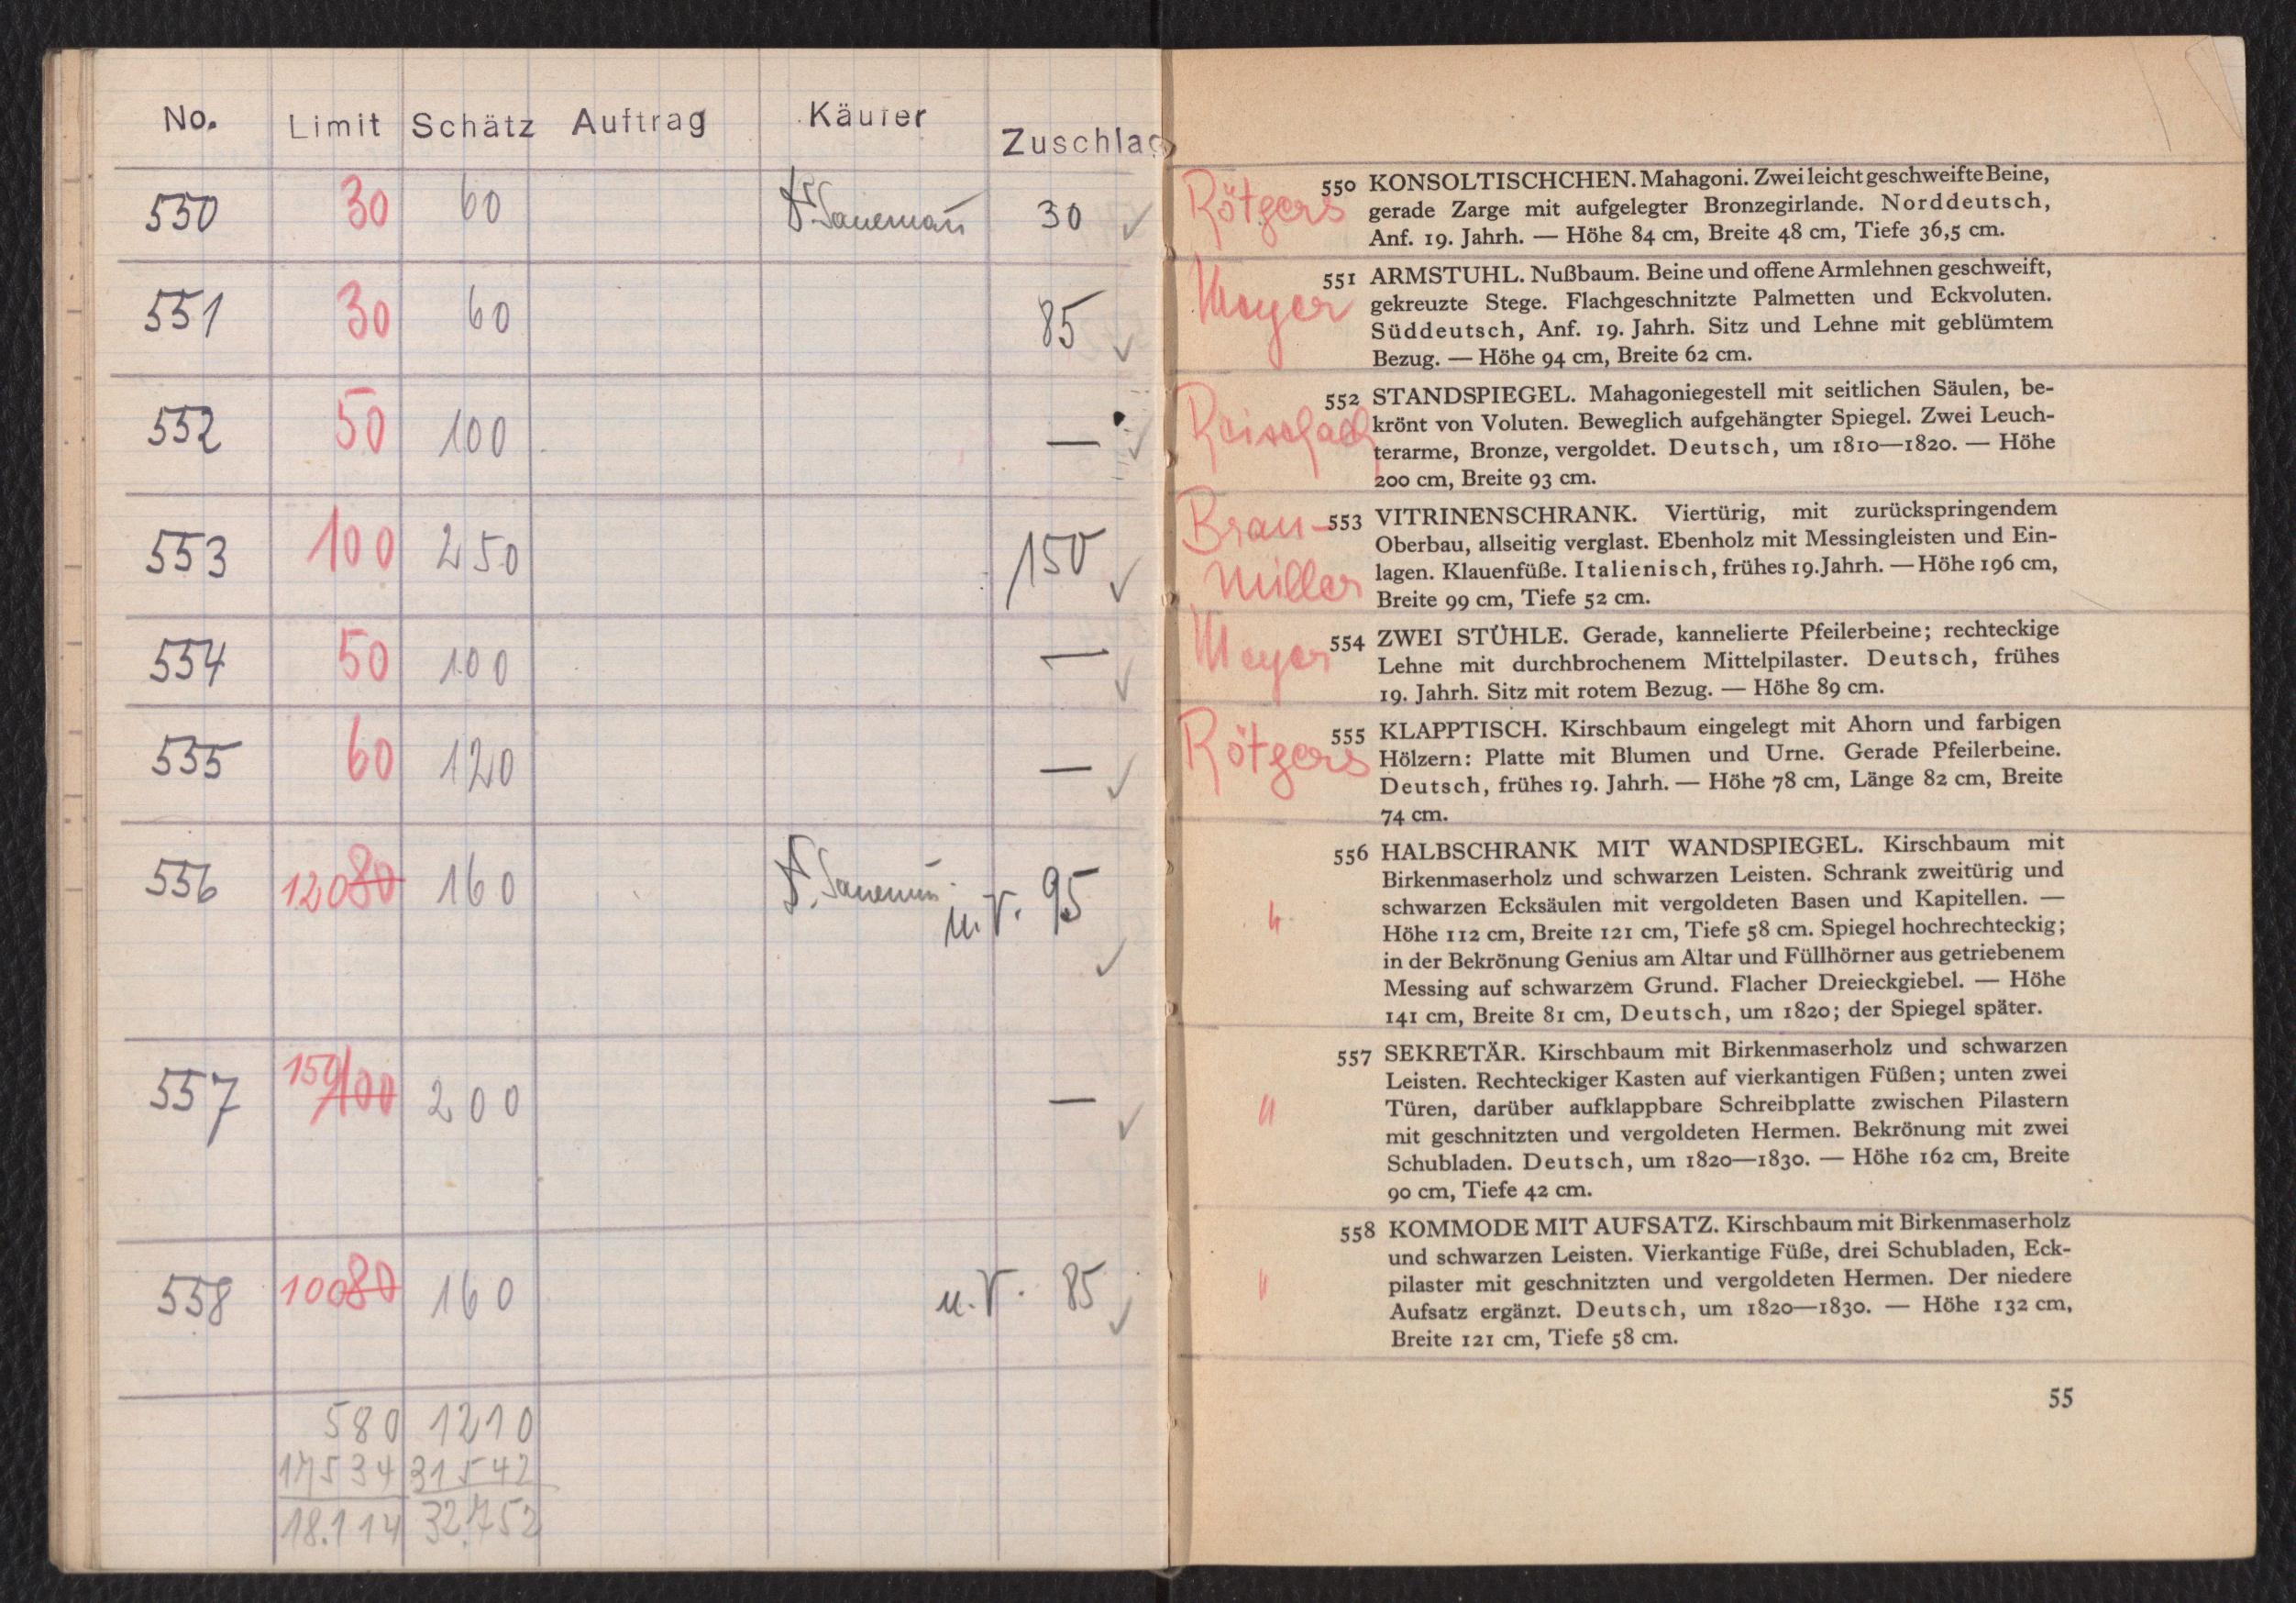 No. Limit Schätz Auftrag Käufer Zuschlag
550 30 60 30
551 30 60 85
552 50 100 —
553 100 250 150
554 50 100 —
555 60 120 —
556 120 80 160 u. V. 95
557 150 100 200 —
558 100 80 160 u. V. 85
580 1210
17534 31542
18.114 32.752
Rötgers
550 KONSOLTISCHCHEN. Mahagoni. Zwei leicht geschweifte Beine,
gerade Zarge mit aufgelegter Bronzegirlande. Norddeutsch,
Anf. 19. Jahrh. — Höhe 84 cm, Breite 48 cm, Tiefe 36,5 cm.
Meyer
551 ARMSTUHL. Nußbaum. Beine und offene Armlehnen geschweift,
gekreuzte Stege. Flachgeschnitzte Palmetten und Eckvoluten.
Süddeutsch, Anf. 19. Jahrh. Sitz und Lehne mit geblümtem
Bezug. — Höhe 94 cm, Breite 62 cm.
Reischach
552 STANDSPIEGEL. Mahagoniegestell mit seitlichen Säulen, be-
krönt von Voluten. Beweglich aufgehängter Spiegel. Zwei Leuch-
terarme, Bronze, vergoldet. Deutsch, um 1810—1820. — Höhe
200 cm, Breite 93 cm.
Brau-
miller
553 VITRINENSCHRANK. Viertürig, mit zurückspringendem
Oberbau, allseitig verglast. Ebenholz mit Messingleisten und Ein-
lagen. Klauenfüße. Italienisch, frühes 19. Jahrh. — Höhe 196 cm,
Breite 99 cm, Tiefe 52 cm.
Meyer
554 ZWEI STÜHLE. Gerade, kannelierte Pfeilerbeine; rechteckige
Lehne mit durchbrochenem Mittelpilaster. Deutsch, frühes
19. Jahrh. Sitz mit rotem Bezug. — Höhe 89 cm.
Rötgers
555 KLAPPTISCH. Kirschbaum eingelegt mit Ahorn und farbigen
Hölzern: Platte mit Blumen und Urne. Gerade Pfeilerbeine.
Deutsch, frühes 19. Jahrh. — Höhe 78 cm, Länge 82 cm, Breite
74 cm.
"
556 HALBSCHRANK MIT WANDSPIEGEL. Kirschbaum mit
Birkenmaserholz und schwarzen Leisten. Schrank zweitürig und
schwarzen Ecksäulen mit vergoldeten Basen und Kapitellen. —
Höhe 112 cm, Breite 121 cm, Tiefe 58 cm. Spiegel hochrechteckig;
in der Bekrönung Genius am Altar und Füllhörner aus getriebenem
Messing auf schwarzem Grund. Flacher Dreieckgiebel. — Höhe
141 cm, Breite 81 cm, Deutsch, um 1820; der Spiegel später.
"
557 SEKRETÄR. Kirschbaum mit Birkenmaserholz und schwarzen
Leisten. Rechteckiger Kasten auf vierkantigen Füßen; unten zwei
Türen, darüber aufklappbare Schreibplatte zwischen Pilastern
mit geschnitzten und vergoldeten Hermen. Bekrönung mit zwei
Schubladen. Deutsch, um 1820—1830. — Höhe 162 cm, Breite
90 cm, Tiefe 42 cm.
"
558 KOMMODE MIT AUFSATZ. Kirschbaum mit Birkenmaserholz
und schwarzen Leisten. Vierkantige Füße, drei Schubladen, Eck-
pilaster mit geschnitzten und vergoldeten Hermen. Der niedere
Aufsatz ergänzt. Deutsch, um 1820—1830. — Höhe 132 cm,
Breite 121 cm, Tiefe 58 cm.
55